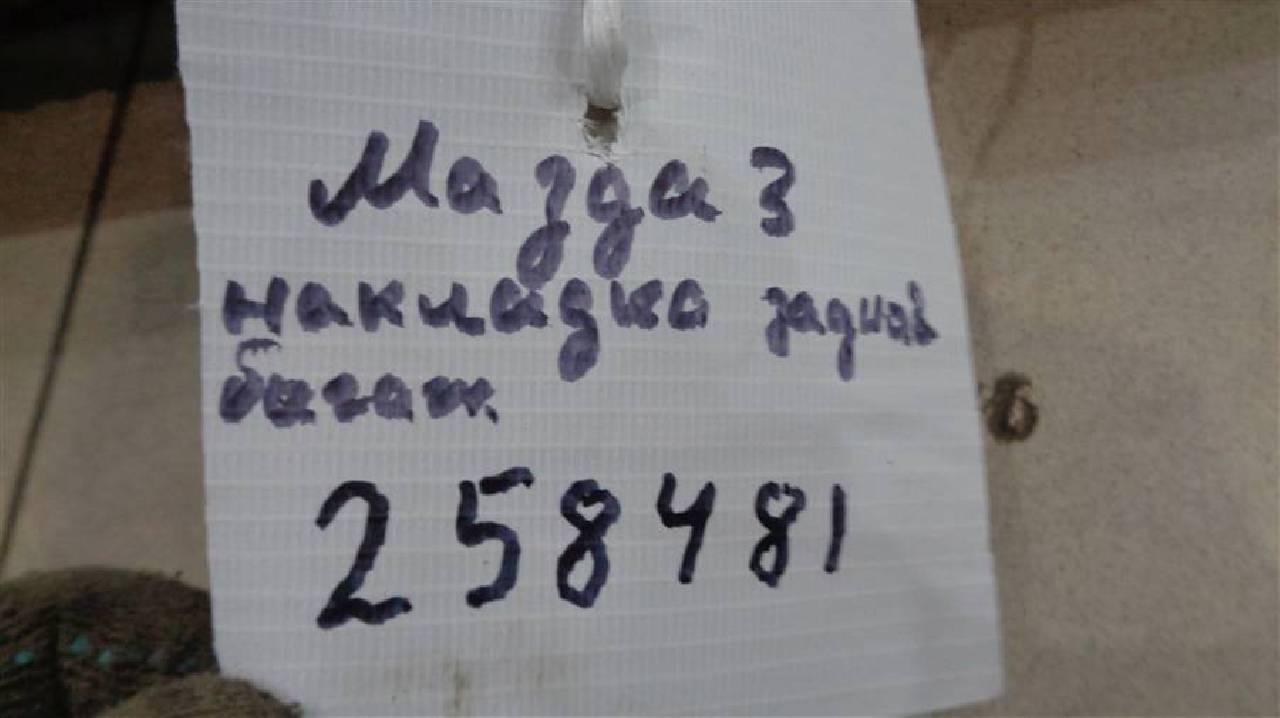 Мазда 3
накладка задная
багаж
258481